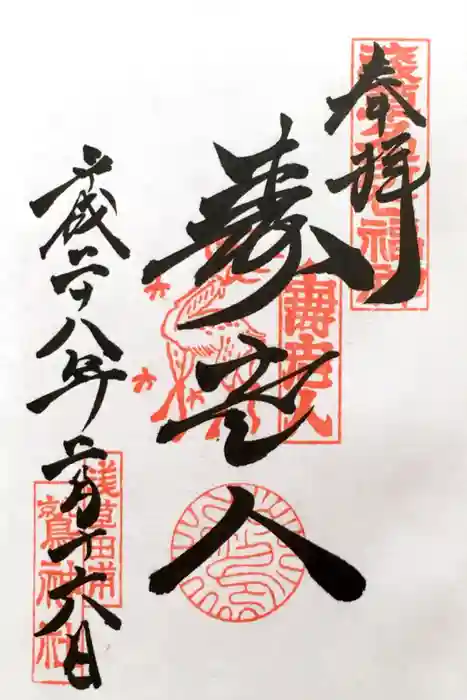 奉拝
浅草名所七福神
寿老人
壽老人
歳二十八年二月十六日
浅草田甫
鷲神社